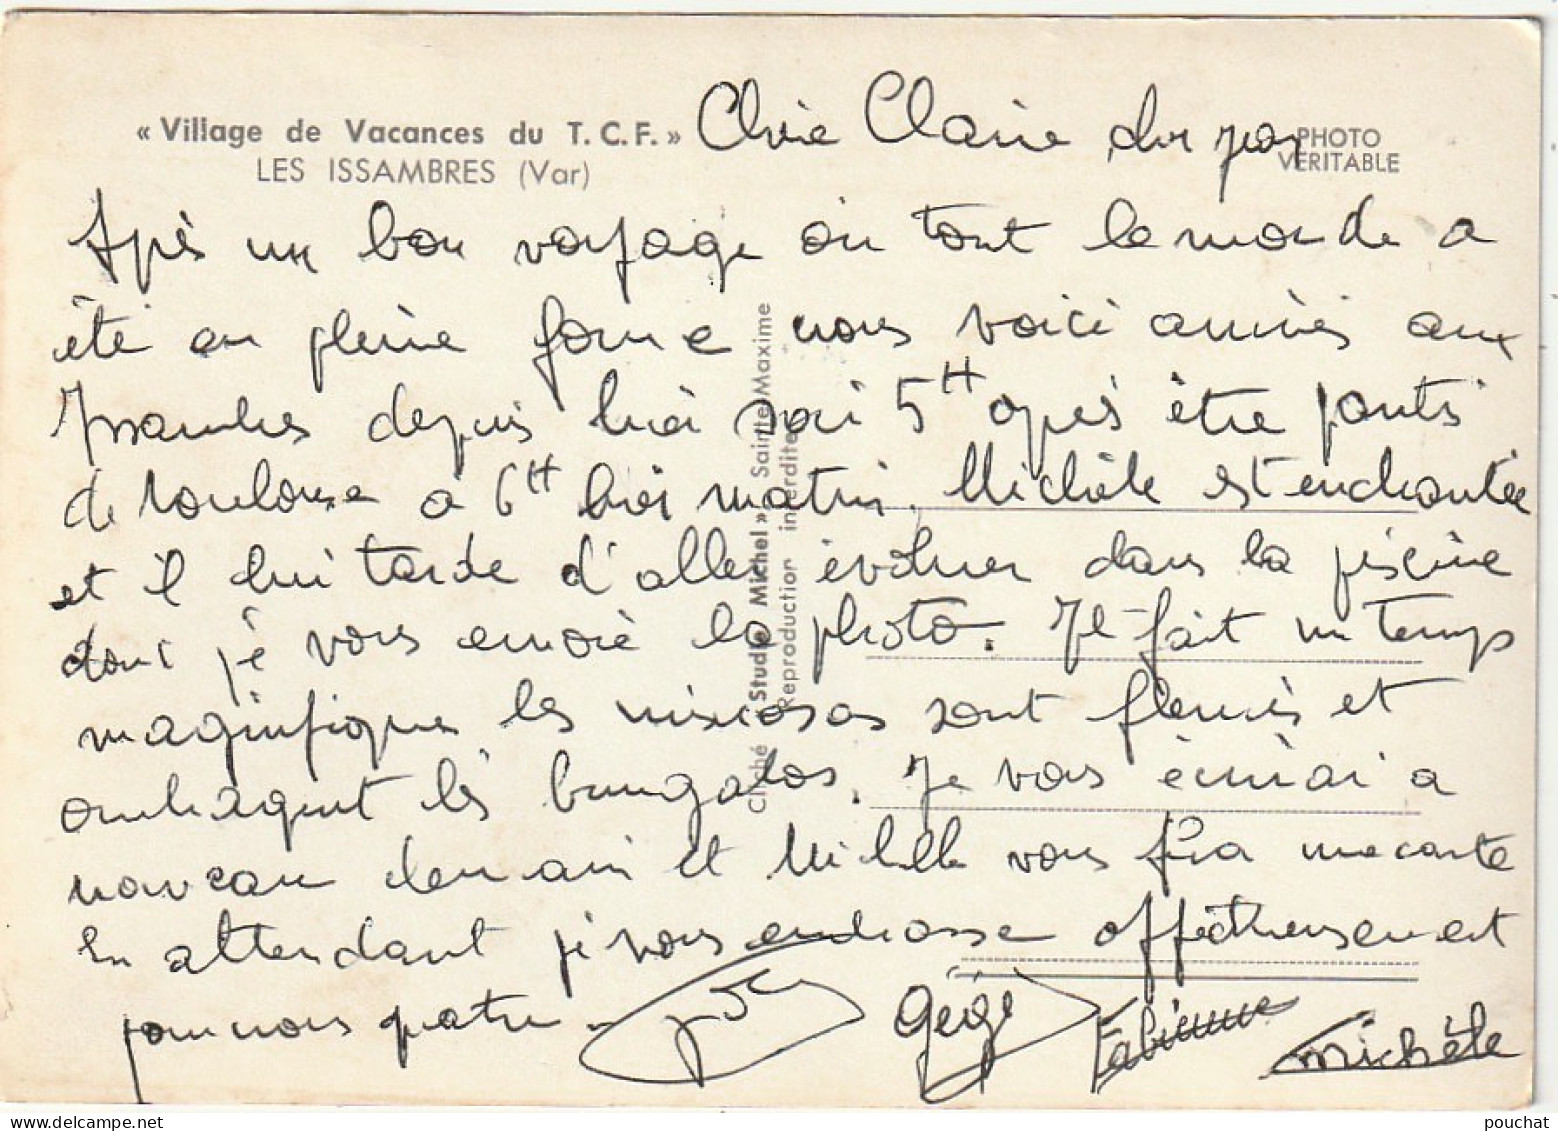 « Village de Vacances du T.C.F. »
LES ISSAMBRES (Var)
PHOTO
VÉRITABLE
Chère Claire
Après un bon voyage où tout le monde a
été en pleine forme nous voici arrivés aux
Issambres depuis hier soir 5H après être partis
de Toulouse a 6H hier matin. Michèle est enchantée
et il lui tarde d'aller évoluer dans la piscine
dont je vous envoie la photo. Il fait un temps
magnifique les mimosas sont fleuris et
ombragent les bungalos. Je vous écrirai a
nouveau demain et Michelle vous fera une carte
En attendant je vous embrasse affectueusement
pour nous quatre
Gégé
Fabienne
Michèle
Cliché « Studio Michel » Sainte-Maxime
Reproduction interdite
pouchat